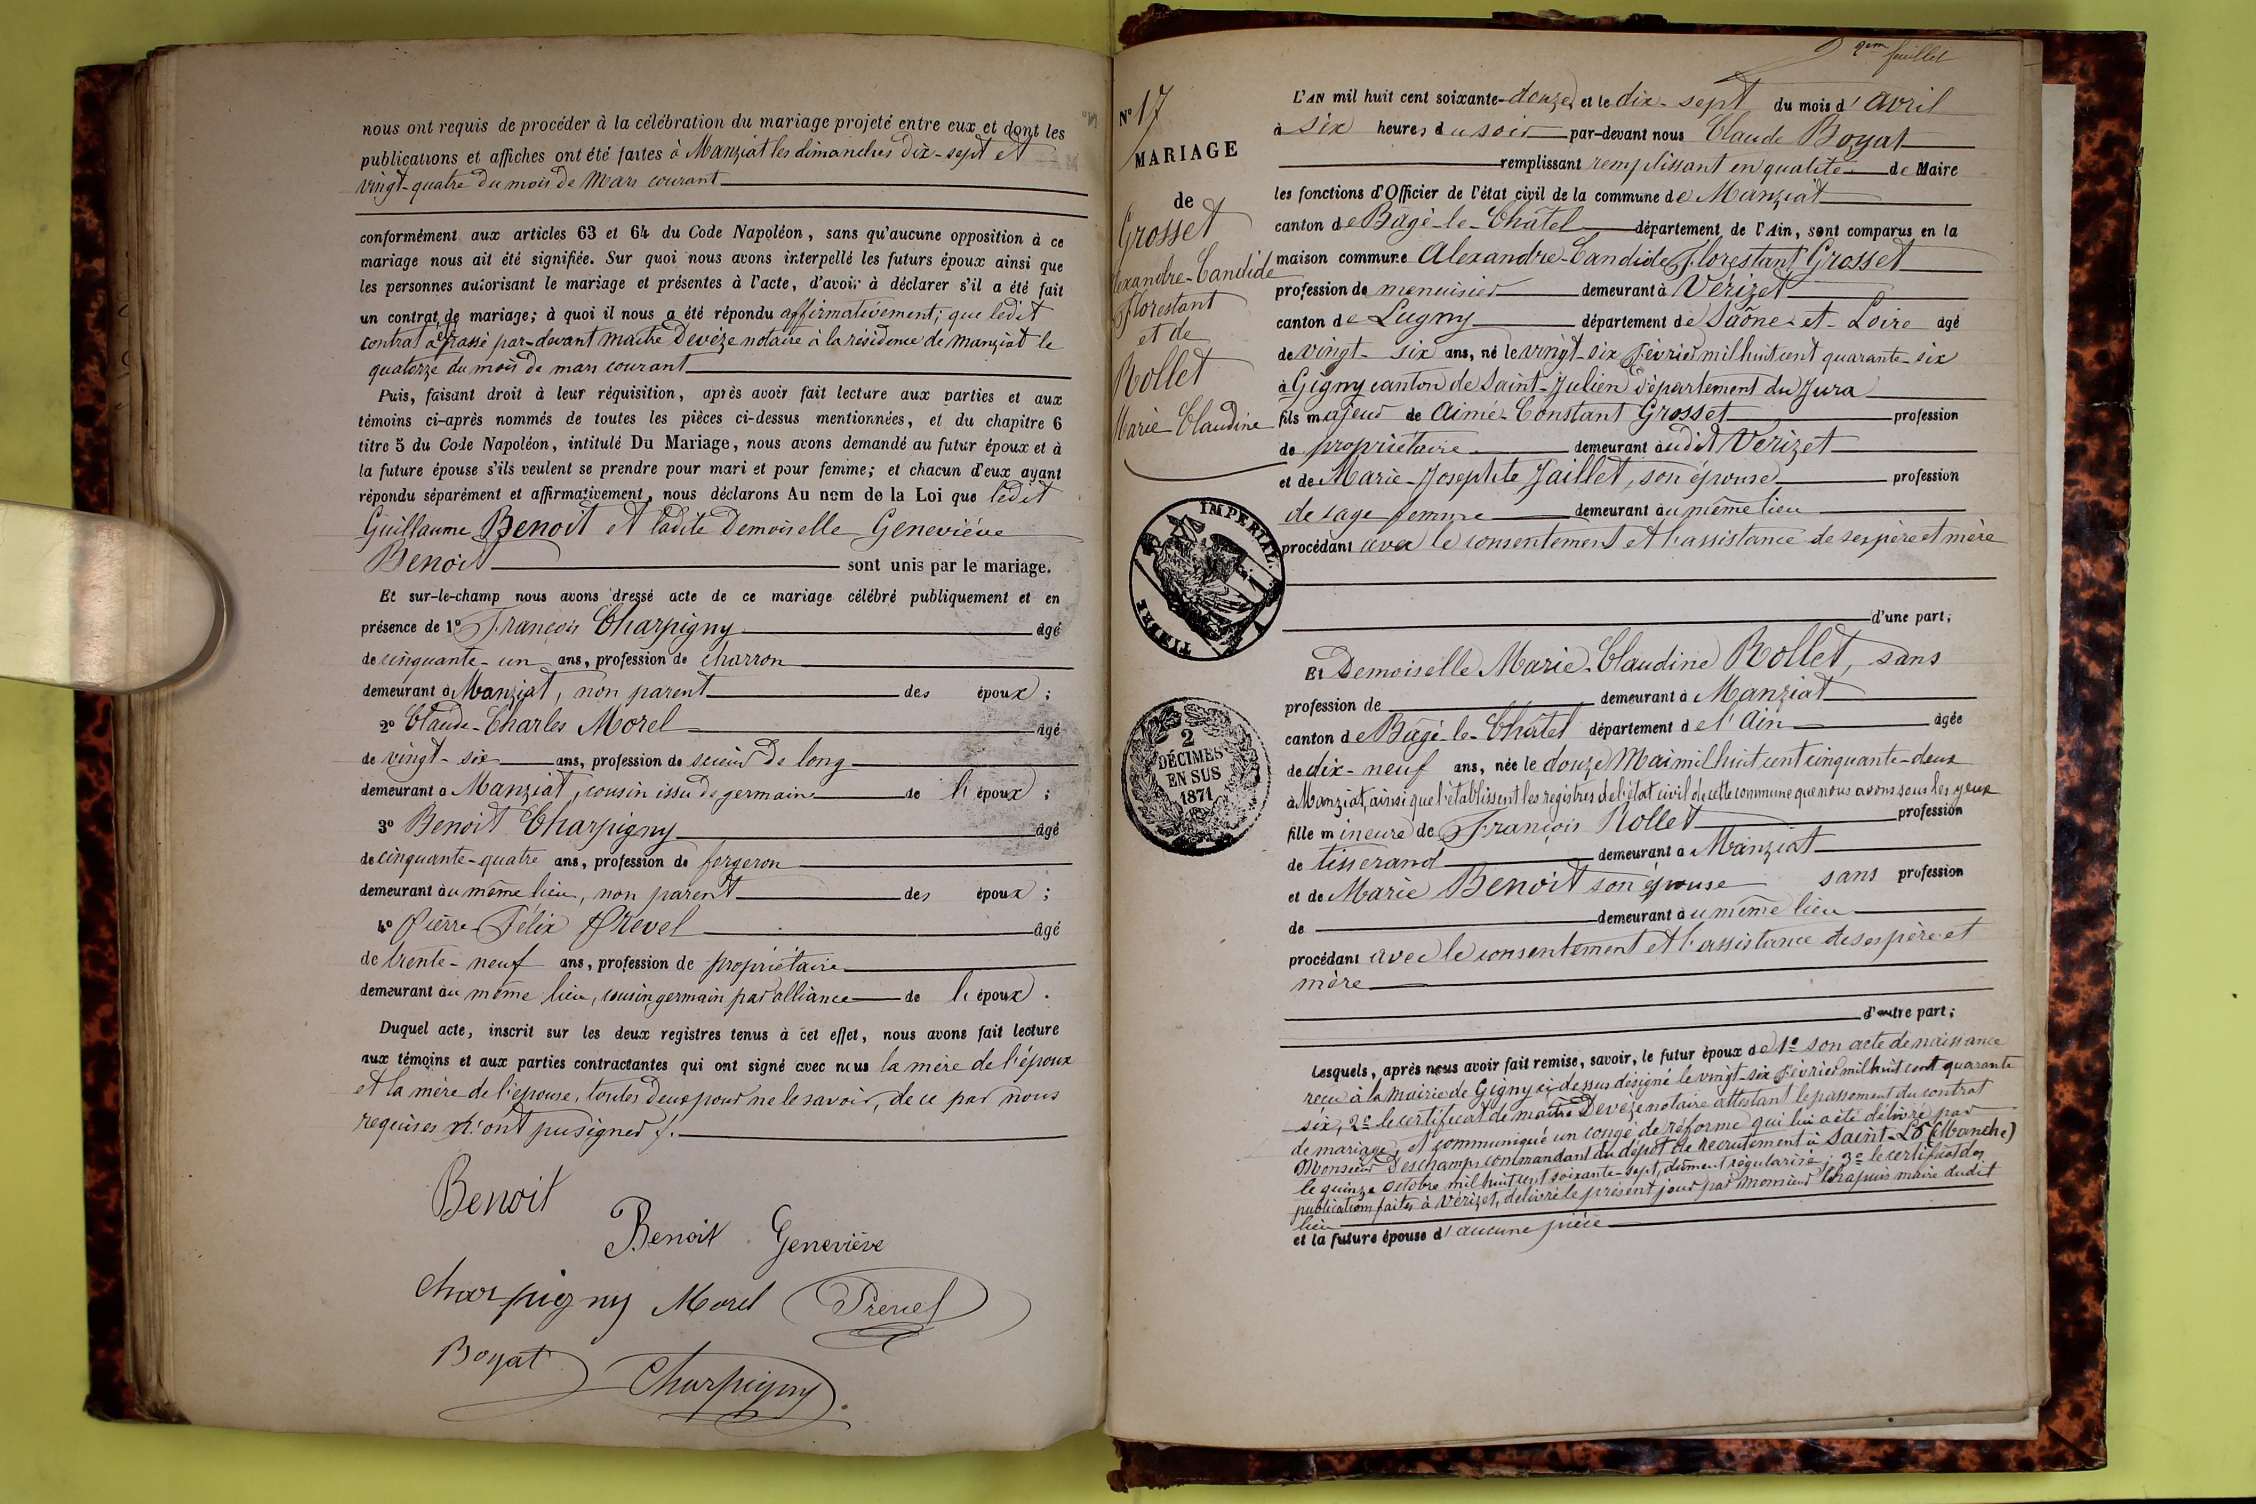 nous ont requis de procéder à la célébration du mariage projeté entre eux et dont les
publications et affiches ont été faites à Manziat les dimanches dix-sept et
vingt-quatre du mois de Mars courant
conformément aux articles 63 et 64 du Code Napoléon, sans qu'aucune opposition à ce
mariage nous ait été signifiée. Sur quoi nous avons interpellé les futurs époux ainsi que
les personnes autorisant le mariage et présentes à l'acte, d'avoir à déclarer s'il a été fait
un contrat de mariage; à quoi il nous a été répondu affirmativement; que ledit
contrat a été passé par-devant maître Devèze notaire à la résidence de Manziat le
quatorze du mois de mars courant
Puis, faisant droit à leur réquisition, après avoir fait lecture aux parties et aux
témoins ci-après nommés de toutes les pièces ci-dessus mentionnées, et du chapitre 6
titre 5 du Code Napoléon, intitulé Du Mariage, nous avons demandé au futur époux et à
la future épouse s'ils veulent se prendre pour mari et pour femme; et chacun d'eux ayant
répondu séparément et affirmativement, nous déclarons Au nom de la Loi que ledit
Guillaume Benoit et ladite Demoiselle Geneviéve
Benoit sont unis par le mariage.
Et sur-le-champ nous avons dressé acte de ce mariage célébré publiquement et en
présence de 1° François Charpigny âgé
de cinquante-un ans, profession de charron
demeurant à Manziat, non parent des époux;
2° Claude-Charles Morel âgé
de vingt-six ans, profession de scieur de long
demeurant à Manziat, cousin issu de germain de l'époux;
3° Benoit Charpigny âgé
de cinquante-quatre ans, profession de forgeron
demeurant au même lieu, non parent des époux;
4° Pierre-Félix Prevel âgé
de trente-neuf ans, profession de propriétaire
demeurant au même lieu, cousin germain par alliance de l'époux.
Duquel acte, inscrit sur les deux registres tenus à cet effet, nous avons fait lecture
aux témoins et aux parties contractantes qui ont signé avec nous la mère de l'époux
et la mère de l'épouse, toutes deux pour ne le savoir, de ce par nous
requises n'ont pu signer
Benoit
Benoit Geneviève
Charpigny Morel Prevel
Boyat Charpigny
9em feuillet
N° 17
MARIAGE
de
Grosset
Alexandre-Candide
Florestant
et de
Rollet
Marie-Claudine
TIMBRE IMPERIAL
2
DÉCIMES
EN SUS
1871
L'AN mil huit cent soixante-douze et le dix-sept du mois d'avril
à six heures du soir par-devant nous Claude Boyat
remplissant remplissant en qualité de Maire
les fonctions d'Officier de l'état civil de la commune de Manziat
canton de Bâgé-le-Châtel département de l'Ain, sont comparus en la
maison commune Alexandre-Candide Florestant Grosset
profession de menuisier demeurant à Vérizet
canton de Lugny département de Saône-et-Loire âgé
de vingt-six ans, né le vingt-six février mil huit cent quarante-six
à Gigny canton de Saint-Julien département du Jura
fils majeur de Aimé-Constant Grosset profession
de propriétaire demeurant audit Verizet
et de Marie-Josephte Jaillet, son épouse profession
de sage femme demeurant au même lieu
procédant avec le consentement et l'assistance de ses père et mère
d'une part;
Et Demoiselle Marie-Claudine Rollet, sans
profession de demeurant à Manziat
canton de Bâgé-le-Châtel département de l'Ain âgée
de dix-neuf ans, née le douze Mai mil huit cent cinquante-deux
à Manziat, ainsi que l'établissent les registres de l'état civil de cette commune que nous avons sous les yeux
fille mineure de François Rollet profession
de tisserand demeurant à Manziat
et de Marie Benoit son épouse sans profession
de demeurant au même lieu
procédant avec le consentement et l'assistance de ses père et
mère
d'autre part;
Lesquels, après nous avoir fait remise, savoir, le futur époux de 1° son acte de naissance
reçu à la mairie de Gigny ci-dessus désigné le vingt-six février mil huit cent quarante
six, 2° le certificat de maître Devèze notaire attestant le passement du contrat
de mariage, et communiqué un congé de réforme qui lui a été délivré par
Monsieur Deschamps commandant du dépôt de recrutement à Saint-Lô (Manche)
le quinze Octobre mil huit cent soixante-sept, dûment régularisé; 3° le certificat des
publications faites à Vérizet, délivré le présent jour par Monsieur Chapuis maire dudit
lieu
et la future épouse d'aucune pièce